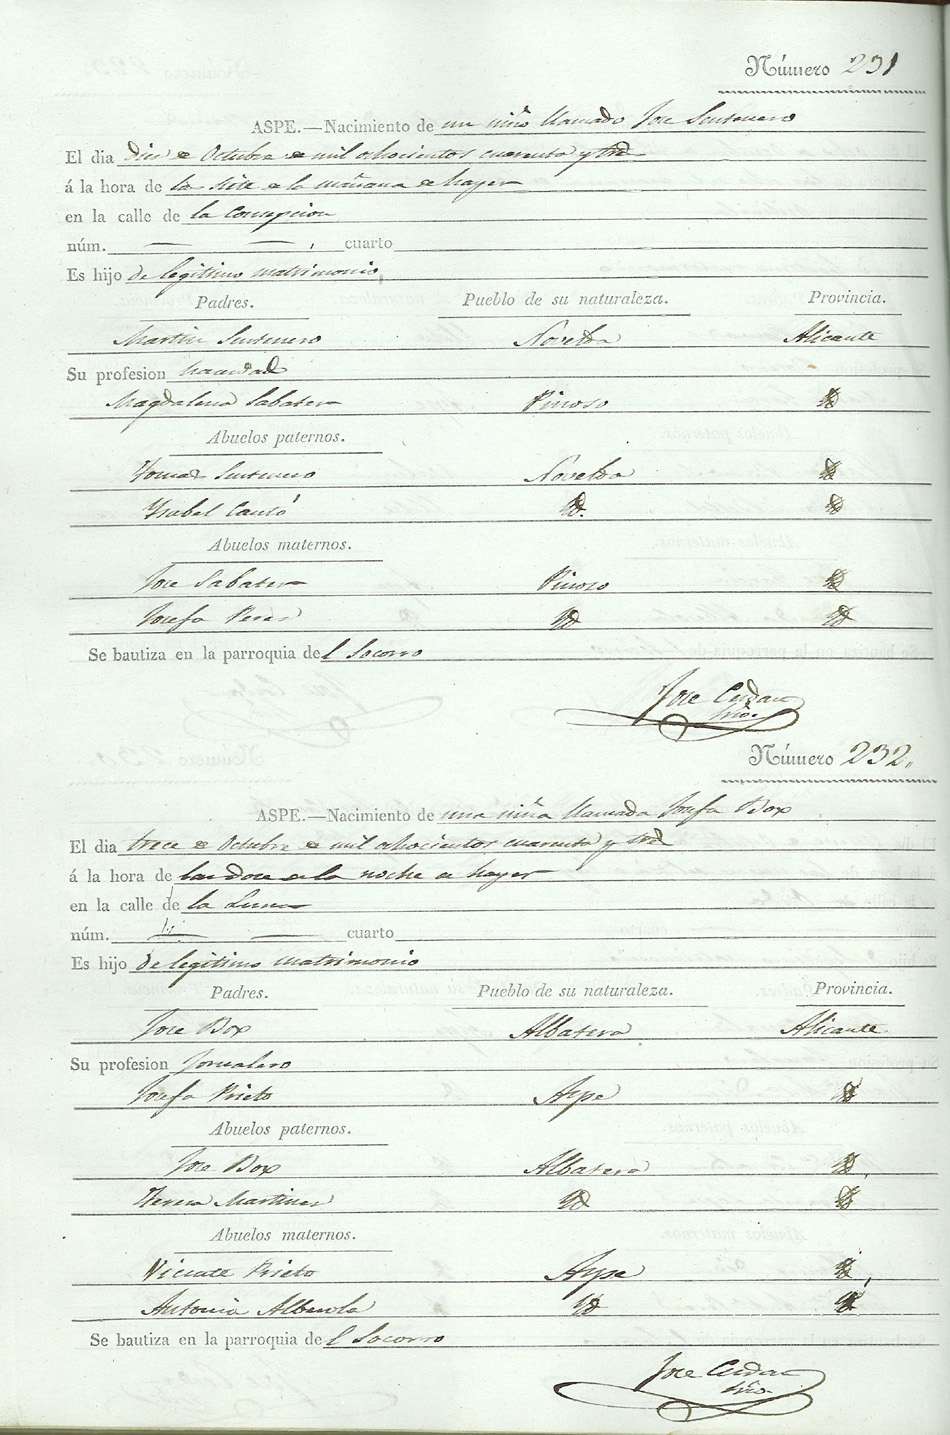 Número 231
ASPE.—Nacimiento de un niño llamado Jose Sentenero
El dia Dies de Octubre de mil ochocientos cuarenta y tres
á la hora de la siete de la mañana de hayer
en la calle de la Concepcion
núm. — — , cuarto
Es hijo de legitimo matrimonio
Padres. Pueblo de su naturaleza. Provincia.
Martin Sentenero Novelda Alicante
Su profesion
Magdalena Sabater Pinoso Yd
Abuelos paternos.
Tomas Sentenero Novelda Yd
Ysabel Cantó Yd. Yd
Abuelos maternos.
Jose Sabater Pinoso Yd
Josefa Peres Yd Yd
Se bautiza en la parroquia del Socorro
Jose Cerdan
Srio.
Número 232.
ASPE.—Nacimiento de una niña llamada Josefa Box
El dia trece de Octubre de mil ochocientos cuarenta y tres
á la hora de las doce de la noche de hayer
en la calle de la Luna
núm. — cuarto
Es hijo de legitimo matrimonio
Padres. Pueblo de su naturaleza. Provincia.
Jose Box Albatera Alicante
Su profesion Jornalero
Josefa Prieto Aspe Yd
Abuelos paternos.
Jose Box Albatera Yd
Teresa Martines Yd Yd
Abuelos maternos.
Vicente Prieto Aspe Yd
Antonia Alberola Yd Yd
Se bautiza en la parroquia del Socorro
Jose Cerdan
Srio.